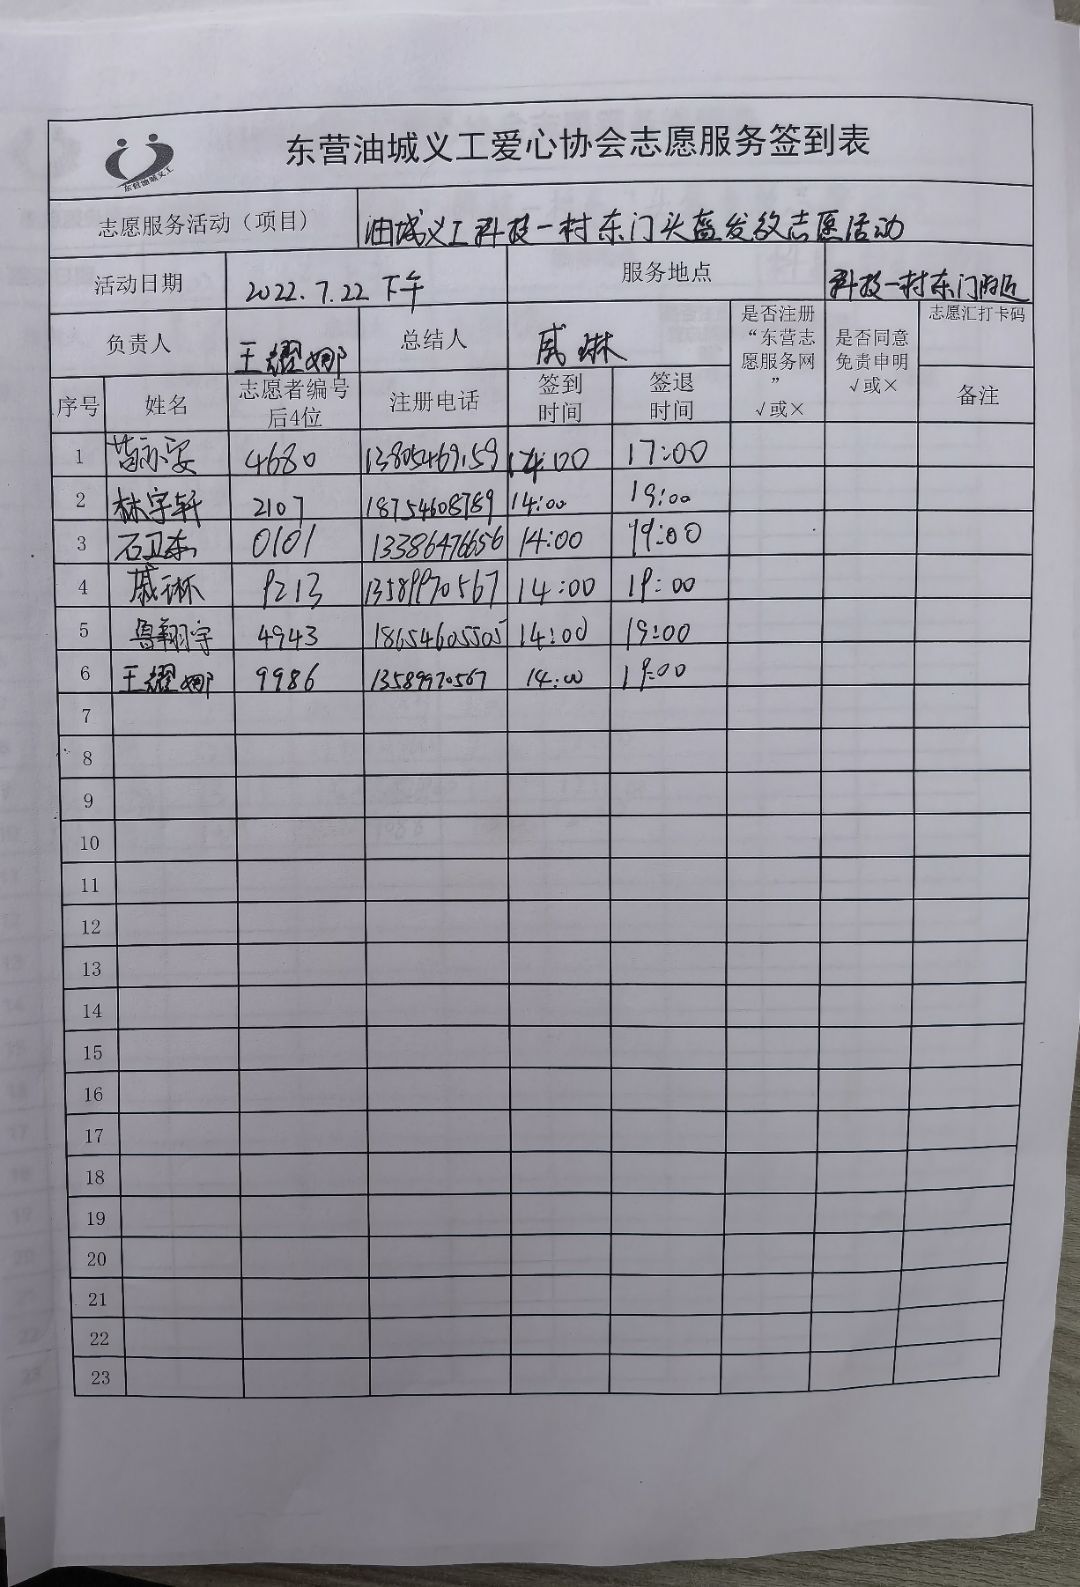 东营油城义工爱心协会志愿服务签到表
东营油城义工
志愿服务活动（项目） 油城义工科技一村东门头盔发放志愿活动
活动日期 2022.7.22 下午 服务地点 科技一村东门附近
负责人 王耀娜 总结人 戚琳 是否注册“东营志愿服务网” √或× 是否同意免责申明 √或× 志愿汇打卡码
序号 姓名 志愿者编号后4位 注册电话 签到时间 签退时间 备注
1 苗永安 4680 13805469159 14:00 17:00
2 林宇轩 2107 18754608789 14:00 19:00
3 石卫东 0101 13386476656 14:00 19:00
4 戚琳 9213 13589970567 14:00 19:00
5 鲁翔宇 4943 18654605505 14:00 19:00
6 王耀娜 9986 13589970567 14:00 19:00
7
8
9
10
11
12
13
14
15
16
17
18
19
20
21
22
23